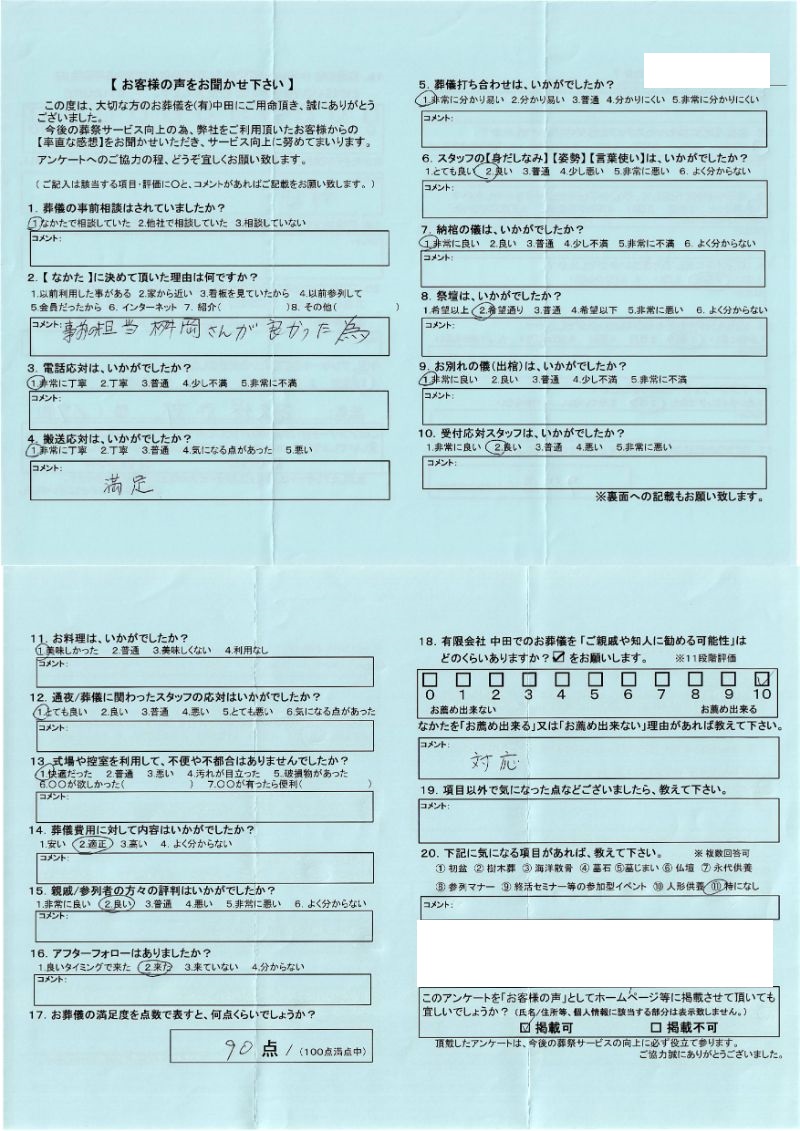 【 お客様の声をお聞かせ下さい 】
この度は、大切な方のお葬儀を(有)中田にご用命頂き、誠にありがとう
ございました。
今後の葬祭サービス向上の為、弊社をご利用頂いたお客様からの
【率直な感想】をお聞かせいただき、サービス向上に努めてまいります。
アンケートへのご協力の程、どうぞ宜しくお願い致します。
( ご記入は該当する項目・評価に〇と、コメントがあればご記載をお願い致します。 )
1. 葬儀の事前相談はされていましたか?
1.なかたで相談していた 2.他社で相談していた 3.相談していない
コメント:
2.【 なかた 】に決めて頂いた理由は何ですか?
1.以前利用した事がある 2.家から近い 3.看板を見ていたから 4.以前参列して
5.会員だったから 6. インターネット 7. 紹介( )8. その他( )
コメント: 担当 桝岡さんが良かった為
3. 電話応対は、いかがでしたか?
1.非常に丁寧 2.丁寧 3.普通 4.少し不満 5.非常に不満
コメント:
4. 搬送応対は、いかがでしたか?
1.非常に丁寧 2.丁寧 3.普通 4.気になる点があった 5.悪い
コメント:
満足
5. 葬儀打ち合わせは、いかがでしたか?
1.非常に分かり易い 2.分かり易い 3.普通 4.分かりにくい 5.非常に分かりにくい
コメント:
6. スタッフの【身だしなみ】【姿勢】【言葉使い】は、いかがでしたか?
1.とても良い 2.良い 3.普通 4.少し悪い 5.非常に悪い 6. よく分からない
コメント:
7. 納棺の儀は、いかがでしたか?
1.非常に良い 2.良い 3.普通 4.少し不満 5.非常に不満 6. よく分からない
コメント:
8. 祭壇は、いかがでしたか?
1.希望以上 2.希望通り 3.普通 4.希望以下 5.非常に悪い 6. よく分からない
コメント:
9. お別れの儀(出棺)は、いかがでしたか?
1.非常に良い 2.良い 3.普通 4.少し不満 5.非常に不満
コメント:
10. 受付応対スタッフは、いかがでしたか?
1.非常に良い 2.良い 3.普通 4.悪い 5.非常に悪い
コメント:
※裏面への記載もお願い致します。
11. お料理は、いかがでしたか?
1.美味しかった 2.普通 3.美味しくない 4.利用なし
コメント:
12. 通夜/葬儀に関わったスタッフの応対はいかがでしたか?
1.とても良い 2.良い 3.普通 4.悪い 5.とても悪い 6.気になる点があった
コメント:
13. 式場や控室を利用して、不便や不都合はありませんでしたか?
1.快適だった 2.普通 3.悪い 4.汚れが目立った 5.破損物があった
6.〇〇が欲しかった( ) 7.〇〇が有ったら便利( )
コメント:
14. 葬儀費用に対して内容はいかがでしたか?
1.安い 2.適正 3.高い 4. よく分からない
コメント:
15. 親戚/参列者の方々の評判はいかがでしたか?
1.非常に良い 2.良い 3.普通 4.悪い 5.非常に悪い 6. よく分からない
コメント:
16. アフターフォローはありましたか?
1.良いタイミングで来た 2.来た 3.来ていない 4.分からない
コメント:
17. お葬儀の満足度を点数で表すと、何点くらいでしょうか?
90 点 / (100点満点中)
18. 有限会社 中田でのお葬儀を「ご親戚や知人に勧める可能性」は
どのくらいありますか?☑をお願いします。 ※11段階評価
0 1 2 3 4 5 6 7 8 9 10
お薦め出来ない お薦め出来る
なかたを「お薦め出来る」又は「お薦め出来ない」理由があれば教えて下さい。
コメント:
対応
19. 項目以外で気になった点などございましたら、教えて下さい。
コメント:
20. 下記に気になる項目があれば、教えて下さい。 ※ 複数回答可
① 初盆 ② 樹木葬 ③ 海洋散骨 ④ 墓石 ⑤墓じまい ⑥ 仏壇 ⑦ 永代供養
⑧ 参列マナー ⑨ 終活セミナー等の参加型イベント ⑩ 人形供養 ⑪特になし
コメント:
このアンケートを「お客様の声」としてホームページ等に掲載させて頂いても
宜しいでしょうか? (氏名/住所等、個人情報に該当する部分は表示致しません。)
☑ 掲載可 □ 掲載不可
頂戴したアンケートは、今後の葬祭サービスの向上に必ず役立て参ります。
ご協力誠にありがとうございました。